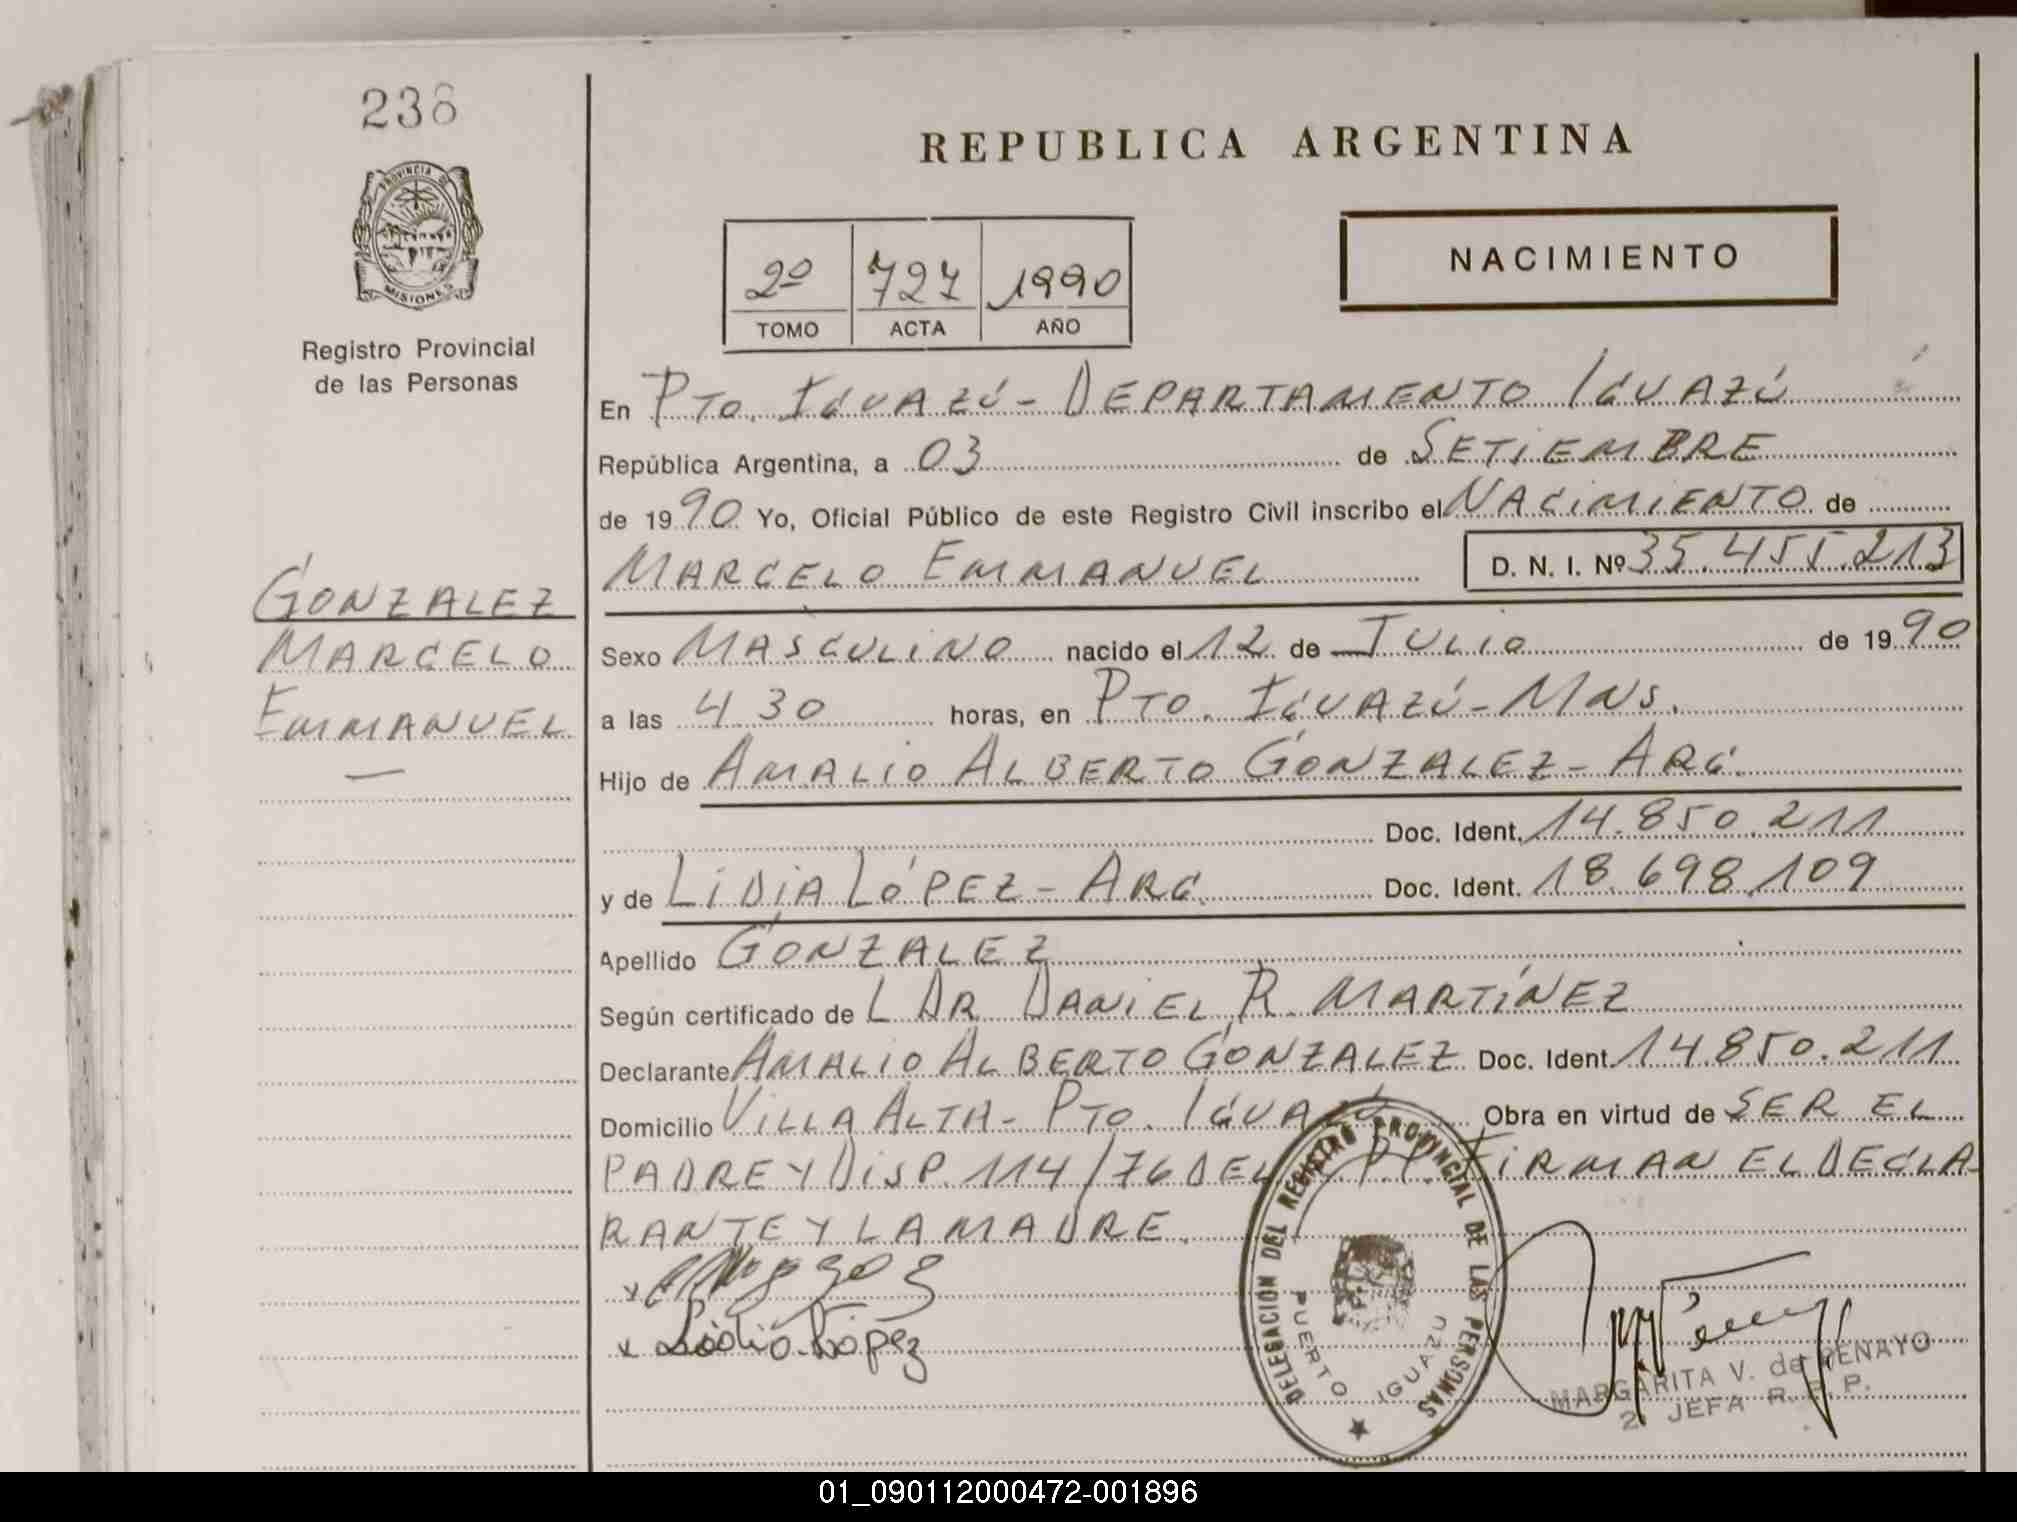 238
PROVINCIA DE
MISIONES
Registro Provincial
de las Personas
GONZALEZ
MARCELO
EMMANUEL
REPUBLICA ARGENTINA
NACIMIENTO
2º 727 1990
TOMO ACTA AÑO
En PTO. IGUAZÚ - DEPARTAMENTO IGUAZÚ
República Argentina, a 03 de SETIEMBRE
de 1990 Yo, Oficial Público de este Registro Civil inscribo el NACIMIENTO de
MARCELO EMMANUEL D. N. I. Nº 35.455.213
Sexo MASCULINO nacido el 12 de JULIO de 1990
a las 4 30 horas, en PTO. IGUAZÚ - MNS.
Hijo de AMALIO ALBERTO GONZALEZ - ARG.
Doc. Ident. 14.850.211
y de LIDIA LÓPEZ - ARG. Doc. Ident. 18.698.109
Apellido GONZALEZ
Según certificado de L DR DANIEL R. MARTÍNEZ
Declarante AMALIO ALBERTO GONZALEZ Doc. Ident. 14.850.211
Domicilio VILLA ALTA - PTO. IGUAZÚ Obra en virtud de SER EL
PADRE Y DISP. 114/76 DEL R.P.P. FIRMAN EL DECLA-
RANTE Y LA MADRE.
x
x Lidia López
DELEGACIÓN DEL REGISTRO PROVINCIAL DE LAS PERSONAS
PUERTO IGUAZU
MARGARITA V. de PENAYO
2ª JEFA R. P. P.
01_090112000472-001896